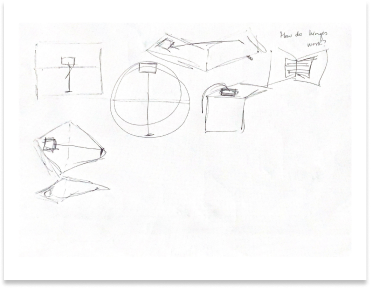 How do hinges
work?